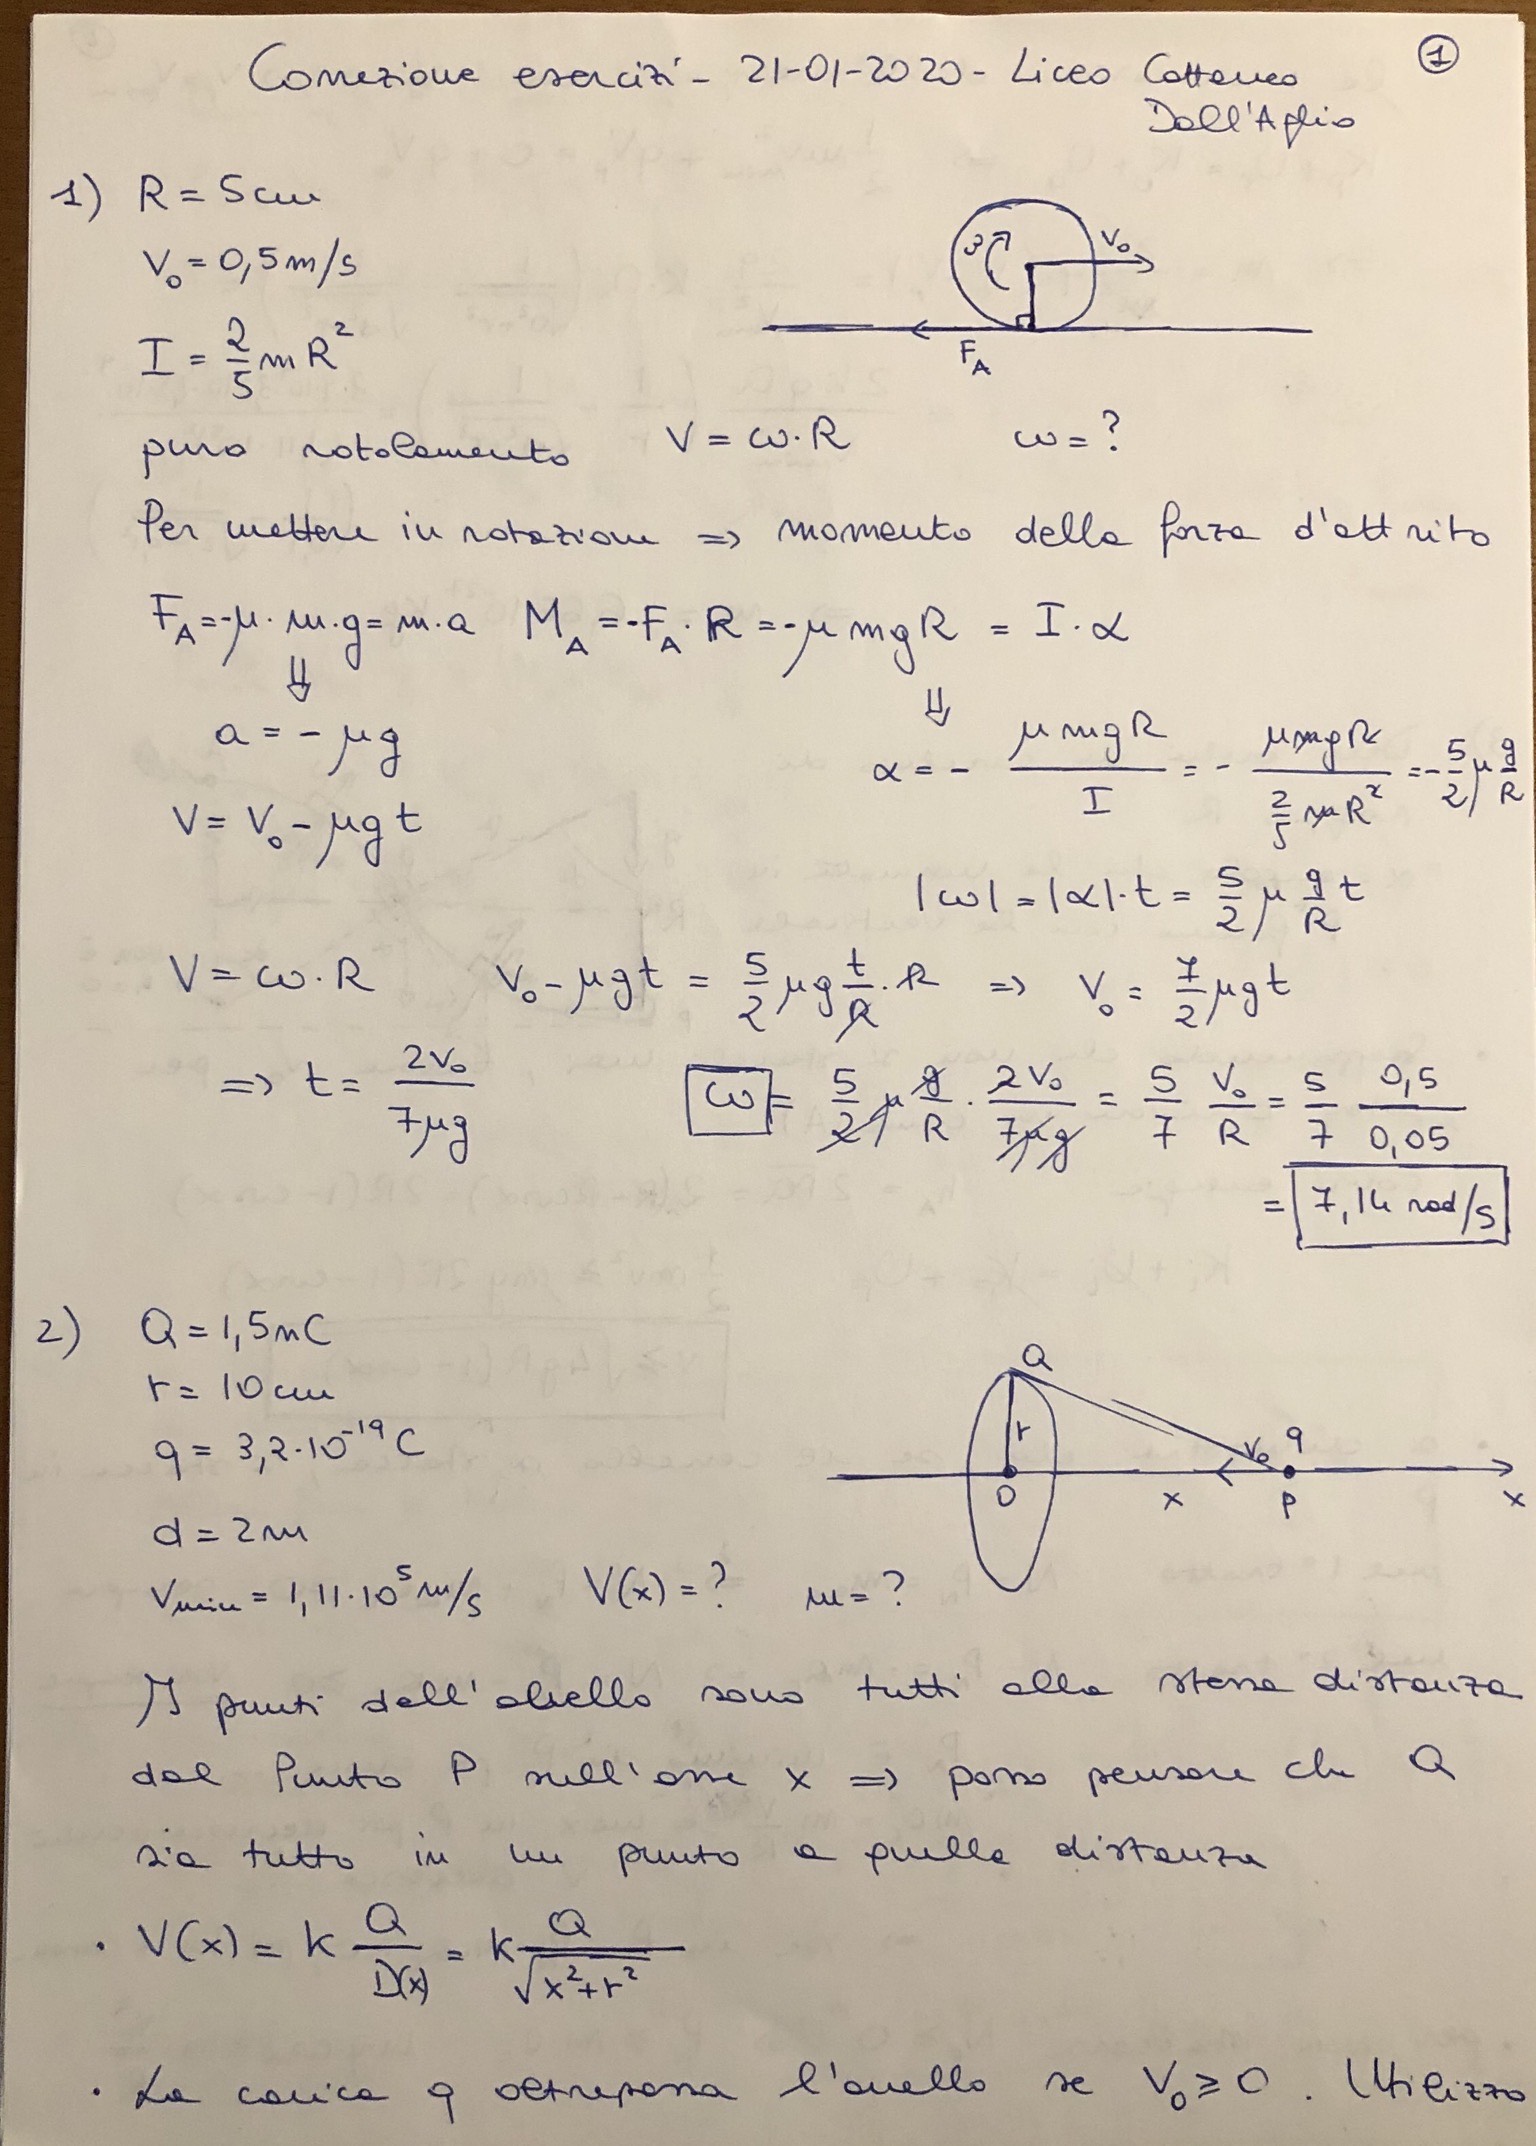 Correzione esercizi - 21-01-2020 - Liceo Cattaneo
Dall'Aglio
1
1) R = 5cm
V₀ = 0,5 m/s
I = 2/5 m R²
ω V₀
F_A
puro rotolamento V = ω·R ω = ?
Per mettere in rotazione => momento della forza d'attrito
F_A = -μ·m·g = m·a M_A = -F_A·R = -μmgR = I·α
⇓ ⇓
a = -μg
α = - μmgR/I = - μmgR/(2/5 mR²) = -5/2 μ g/R
V = V₀ - μgt
|ω| = |α|·t = 5/2 μ g/R t
V = ω·R V₀ - μgt = 5/2 μg t/R·R => V₀ = 7/2 μgt
=> t = 2V₀/7μg ω = 5/2 μ g/R · 2V₀/7μg = 5/7 V₀/R = 5/7 0,5/0,05
= 7,14 rad/s
2) Q = 1,5nC
r = 10cm
q = 3,2·10⁻¹⁹C
d = 2m
Q r V₀ q
O x P x
Vmin = 1,11·10⁵ m/s V(x) = ? m = ?
I punti dell'anello sono tutti alla stessa distanza
dal Punto P sull'asse x => posso pensare che Q
sia tutto in un punto a quella distanza
· V(x) = k Q/D(x) = k Q/√(x²+r²)
· La carica q oltrepassa l'anello se V₀ ≥ 0. Utilizzo